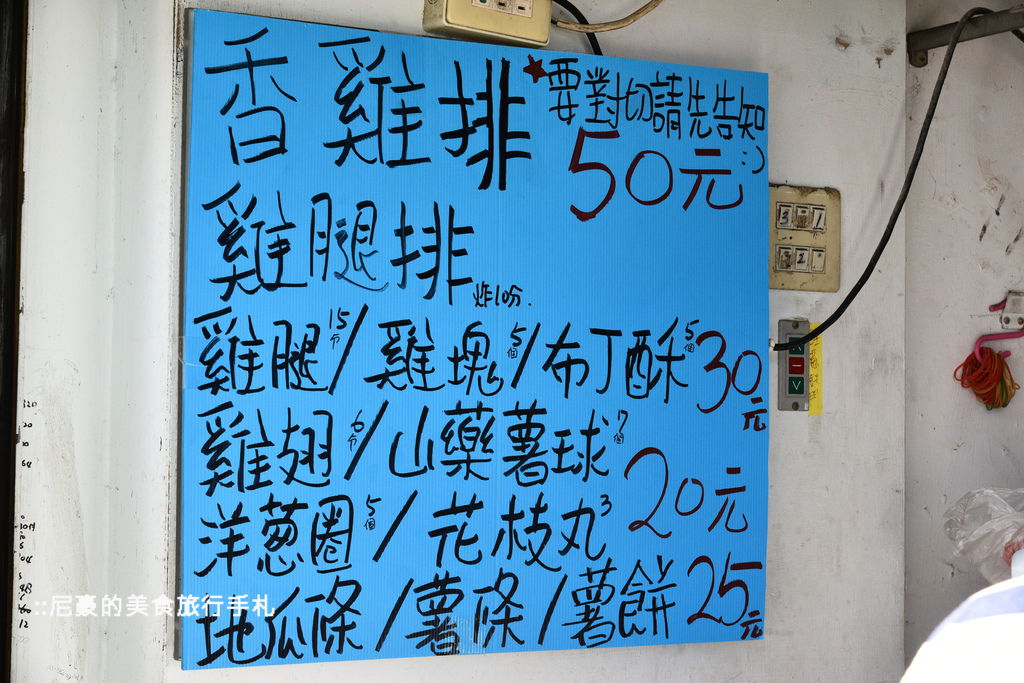 香雞排 *要對切請先告知 :)
50元
雞腿排 炸10分.
雞腿15分/雞塊5個/布丁酥5個 30元
雞翅6分/山藥薯球7個
20元
洋蔥圈5個/花枝丸3
地瓜條/薯條/薯餅 25元
::尼豪的美食旅行手札